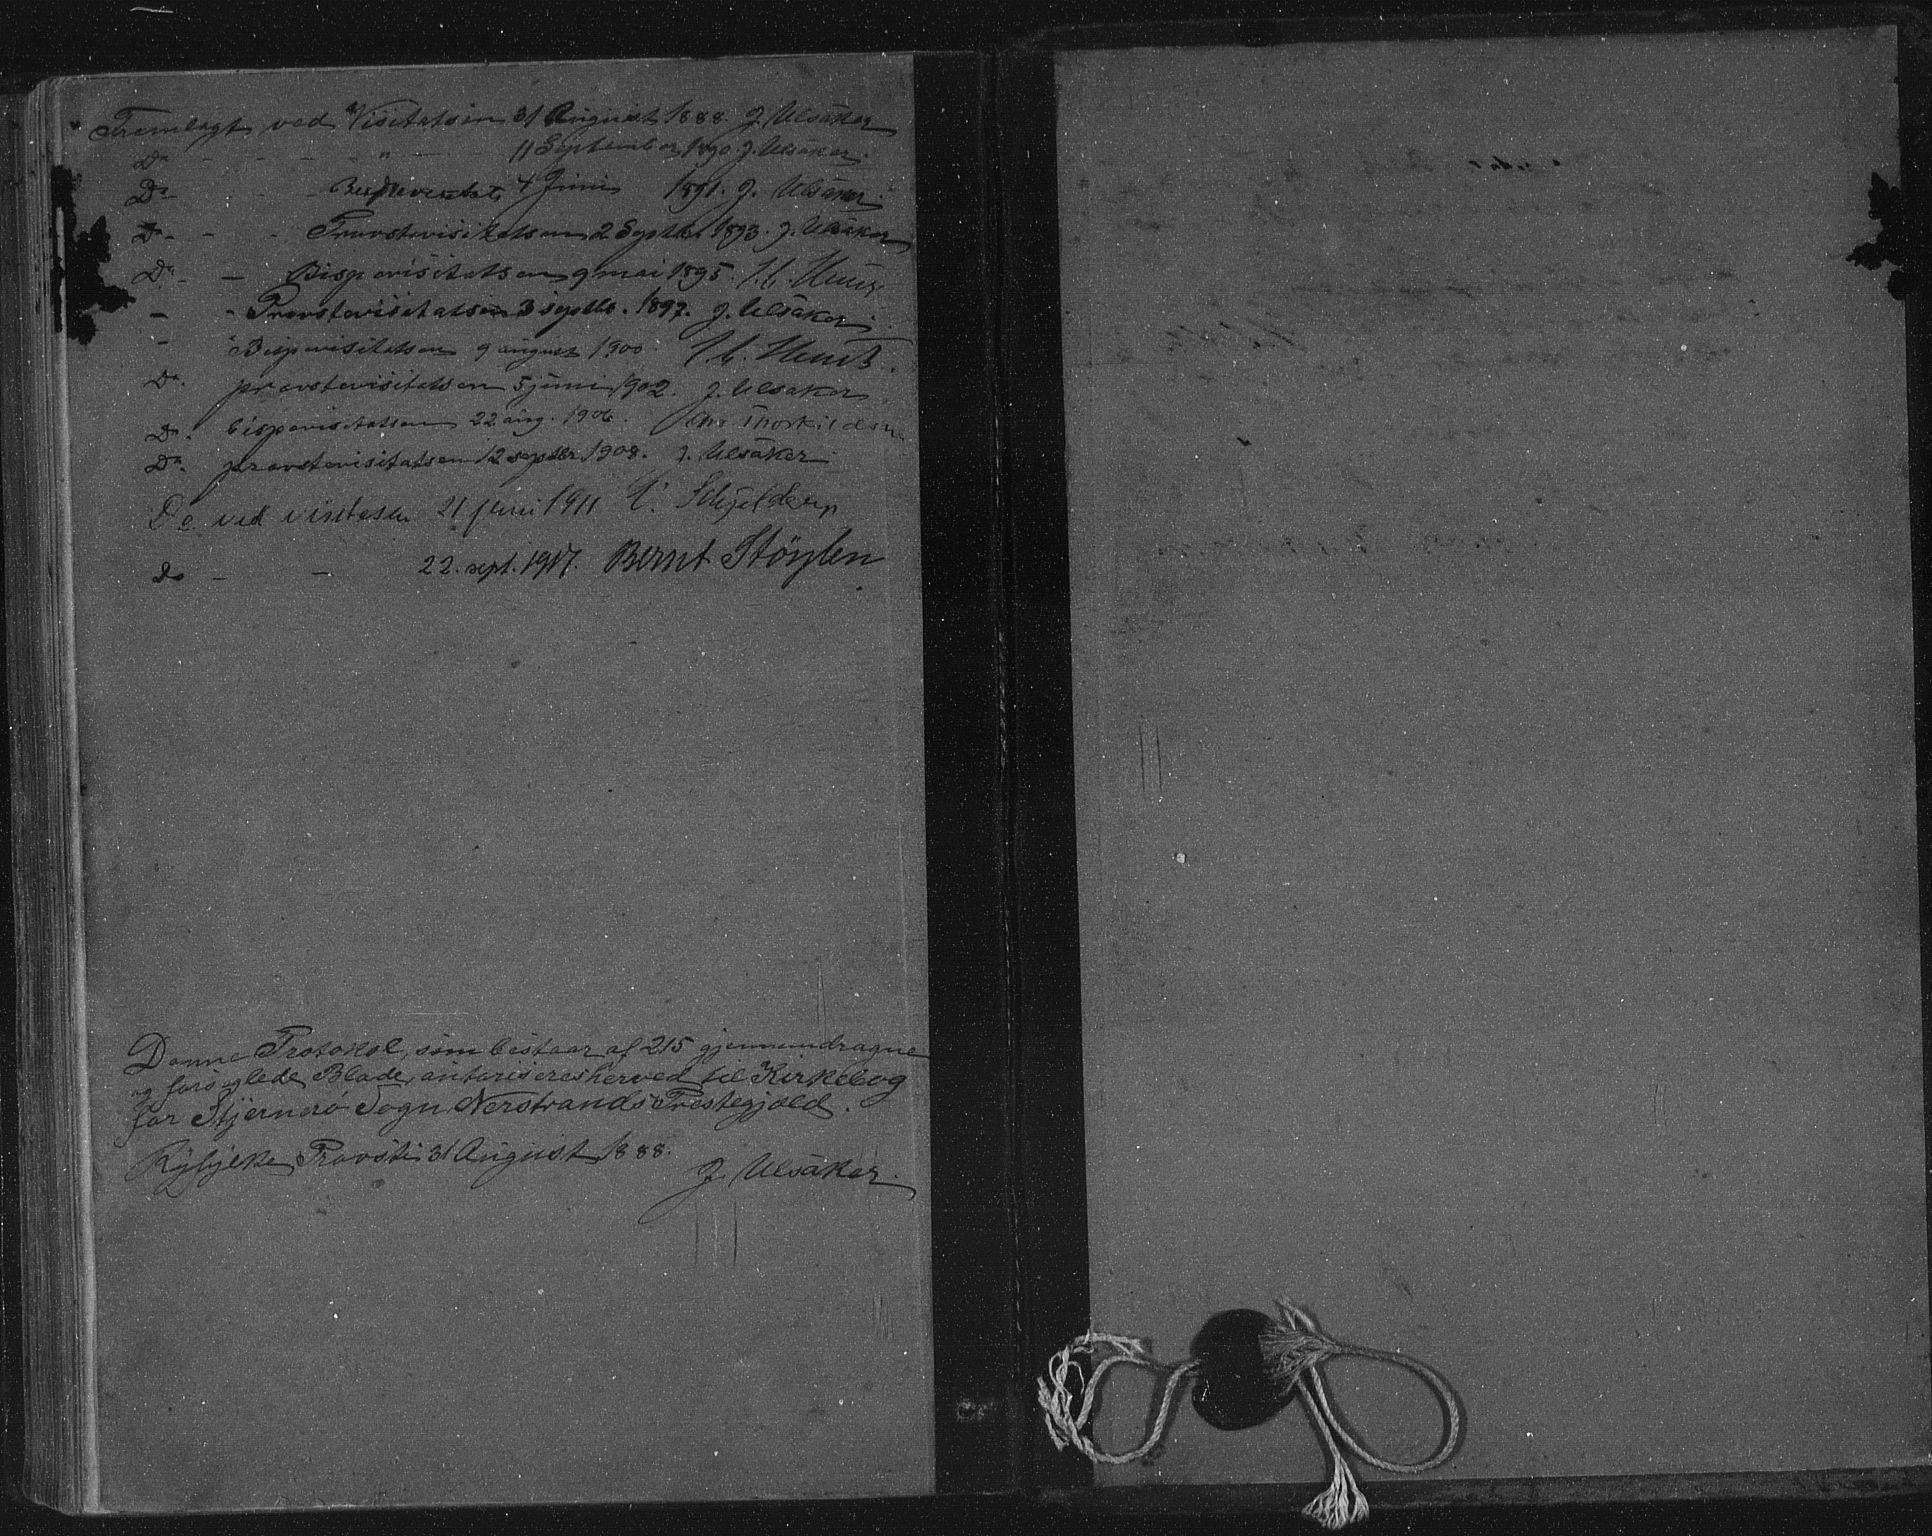 Fremlagt ved Visitatsen 31 August 1888. J. Ulsåker
Do - - - - " - 11 September 1890. J. Ulsaker.
Do - - - Bispevisitats 4 Juni 1891. J. Ulsåker.
Do - - - Provstevisitatsen 2 Septbr 1893. J. Ulsåker
Do - - Bispevisitatsen 9 mai 1895.
- - Provstevisitatsen 3 septbr. 1897. J. Ulsåker.
- " Bispevisitatsen 9 august 1900.
Do. provstevisitatsen 5 juni 1902. J. Ulsaker
Do. bispevisitatsen 22 aug. 1906. Thorkildsen
Do. provstevisitatsen 12 septbr 1908. J. Ulsåker
Do ved visitasen 21 juni 1911 Schjelderup
do - - 22. sept. 1917. Bernt Støylen
Denne Protokol, som bestaar af 215 gjennemdragne
og forseglede Blade, autoriseres herved til Kirkebog
for Stjernerö Sogn Nerstrands Prestegjæld.
Ryfylke Provsti 31 August 1888.
J. Ulsåker.